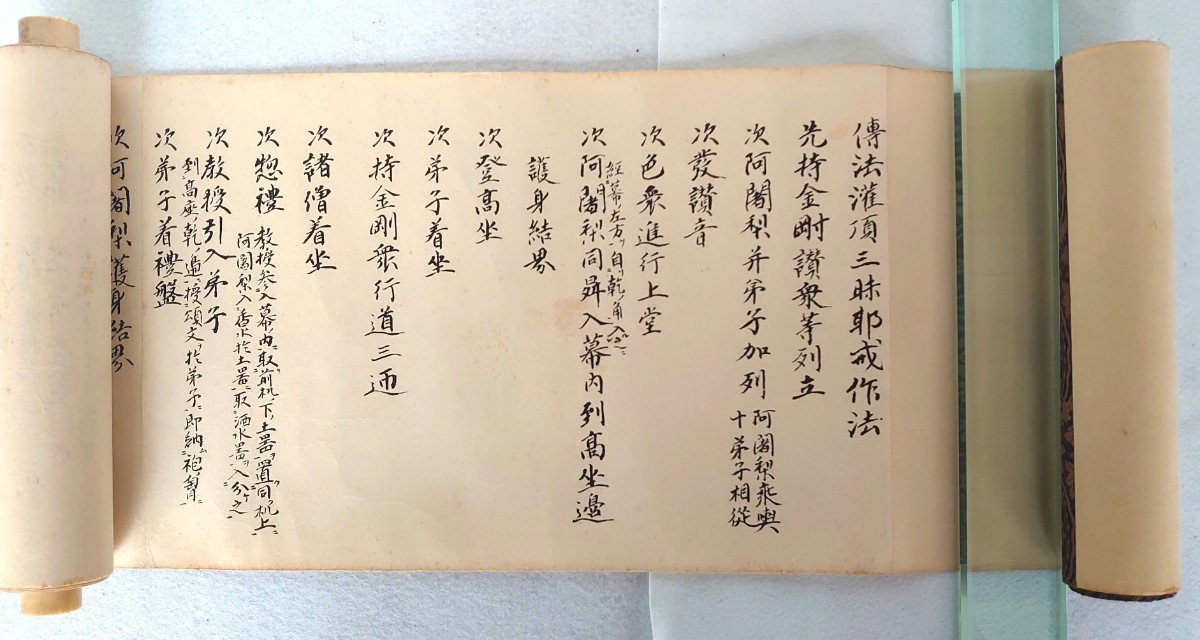 傳法灌頂三昧耶戒作法
先持金剛讃衆等列立
次阿闍梨并弟子加列
阿闍梨乘輿
十弟子相從
次發讃音
次色衆進行上堂
經幕左方自乾ノ角入
次阿闍梨同舁入幕内列高坐邊
護身結界
次登高坐
次弟子着坐
次持金剛衆行道三迊
次諸僧着坐
次惣禮
教授参入幕内取前机下土器置同机上
阿闍梨入香水於土器取洒水器入分之
次教授引入弟子
到高座乾ノ邊授頌文於弟子即納
次弟子着禮盤
次阿闍梨護身結界